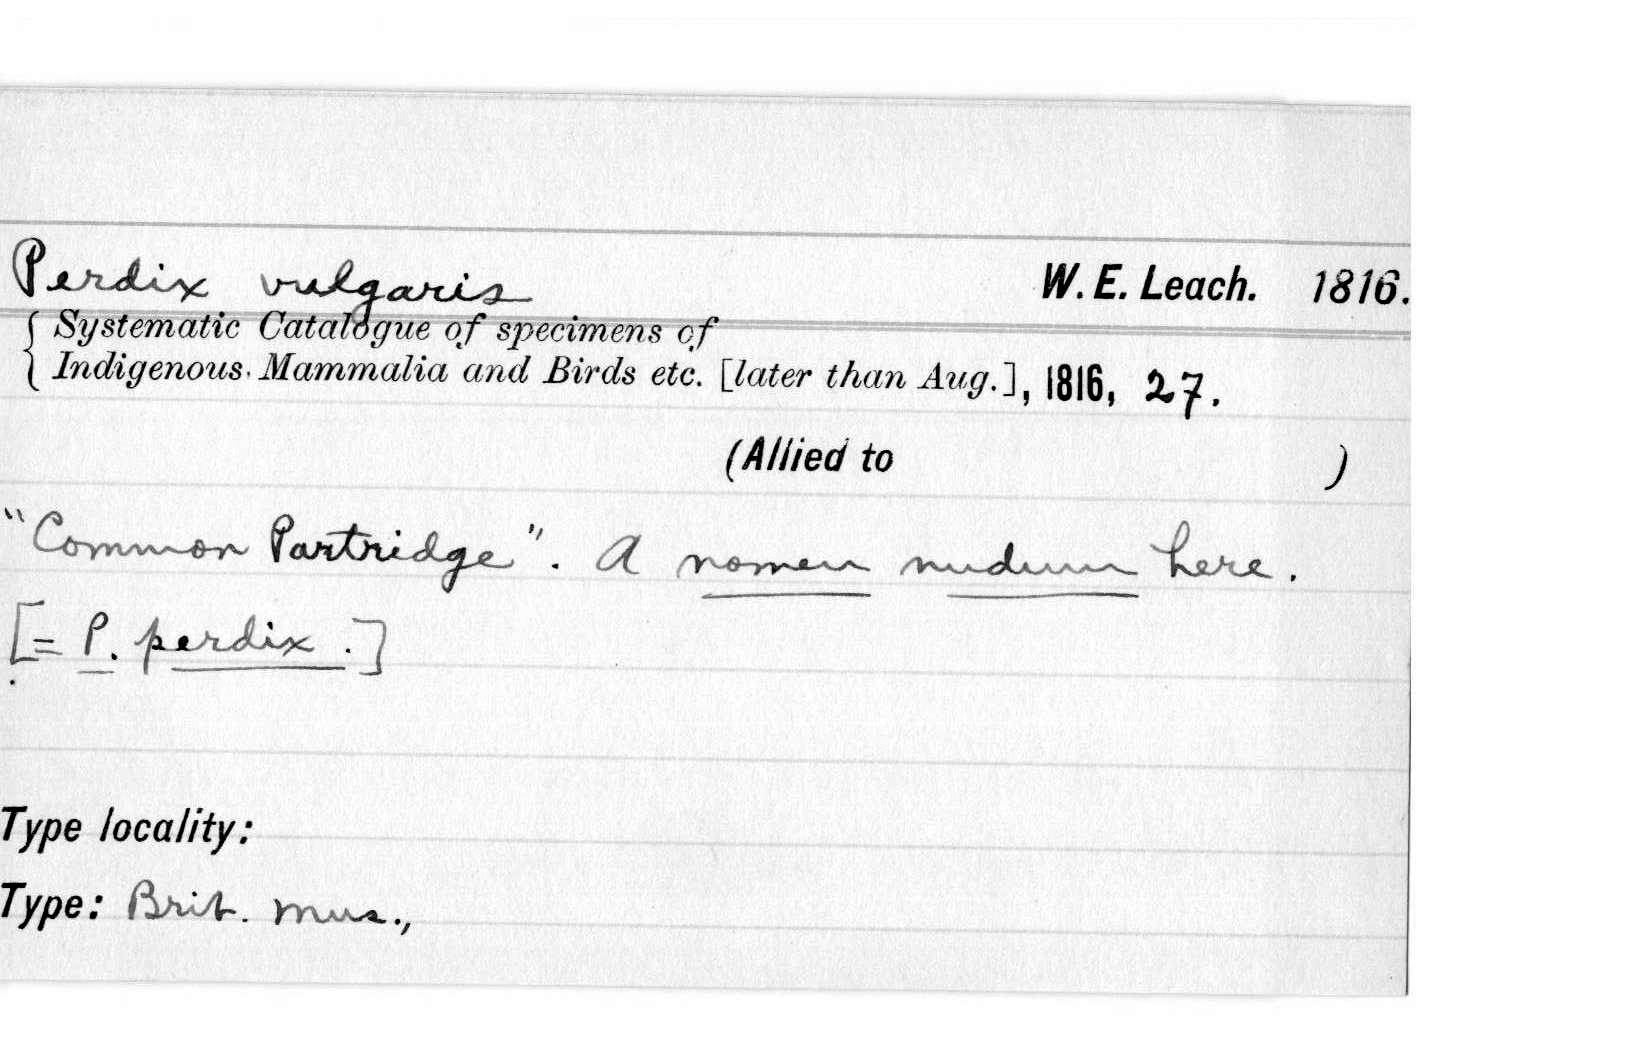 Perdix vulgaris W. E. Leach. 1816.
Systematic Catalogue of specimens of
Indigenous Mammalia and Birds etc. [later than Aug.], 1816, 27.
(Allied to )
"Common Partridge". A nomen nudum here.
[= P. perdix.]
Type locality:
Type: Brit. Mus.,